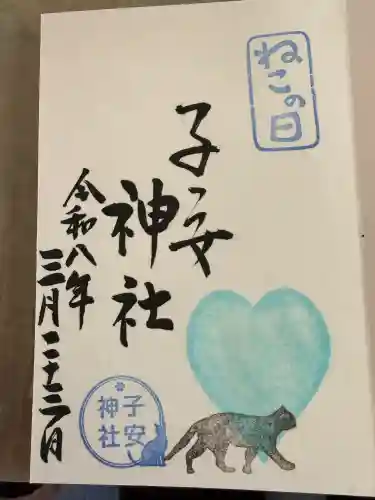 ねこの日
子安
神社
令和八年
三月二十二日
子安
神社